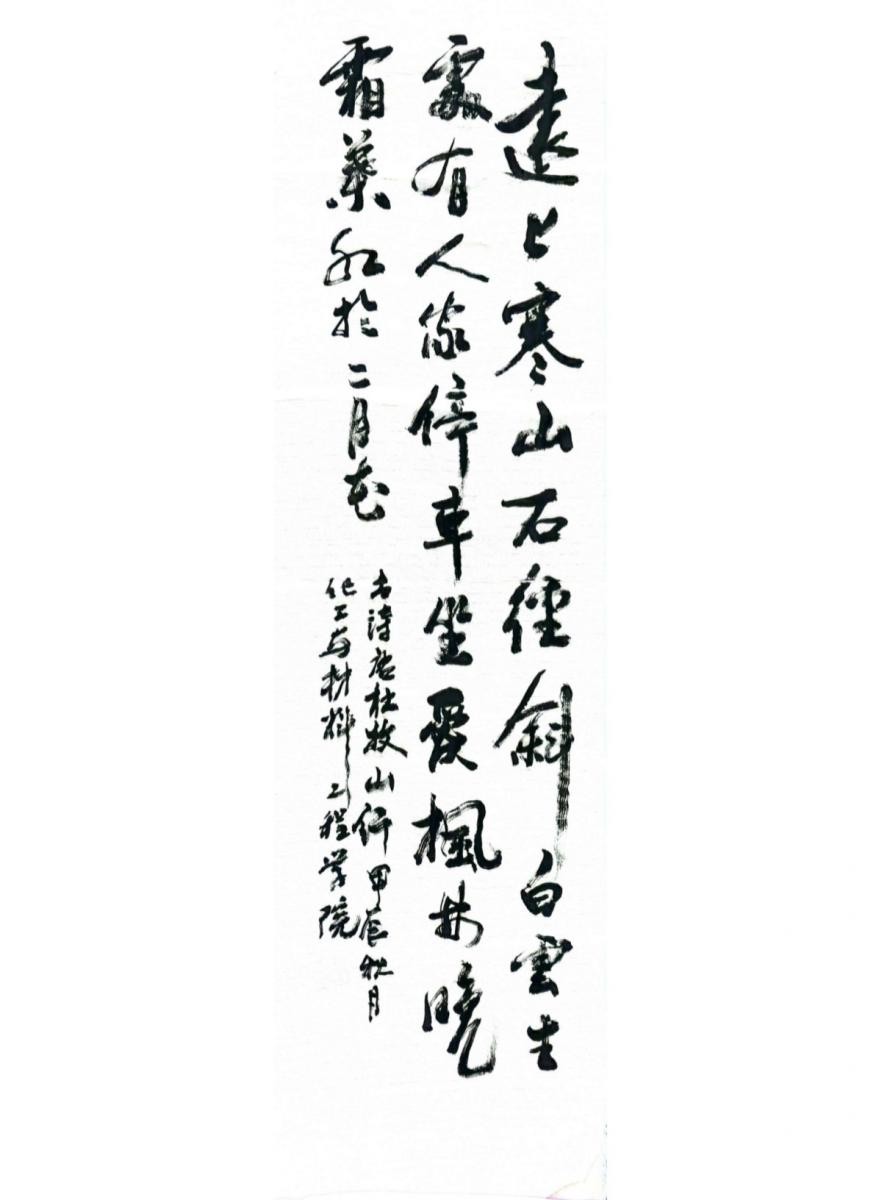 遠上寒山石徑斜白雲生
處有人家停車坐愛楓林晚
霜葉紅於二月花
古詩唐杜牧山行甲辰秋月
化工與材料工程学院